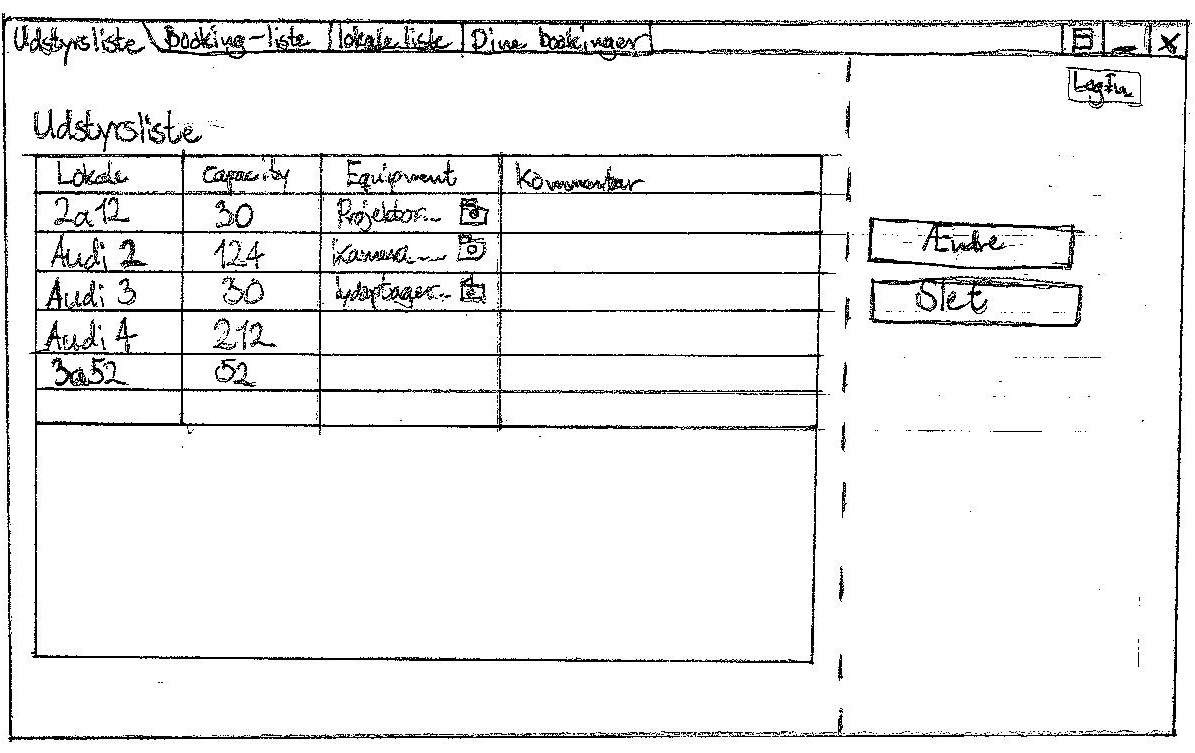 Udstyrsliste Booking-liste lokale liste Dine bookinger
LogIn
Udstyrsliste
Lokale Capacity Equipment Kommentar
2a12 30 Projektor...
Audi 2 124 Kamera....
Audi 3 30 Lydoptager...
Audi 4 212
3a52 52
Ændre
Slet